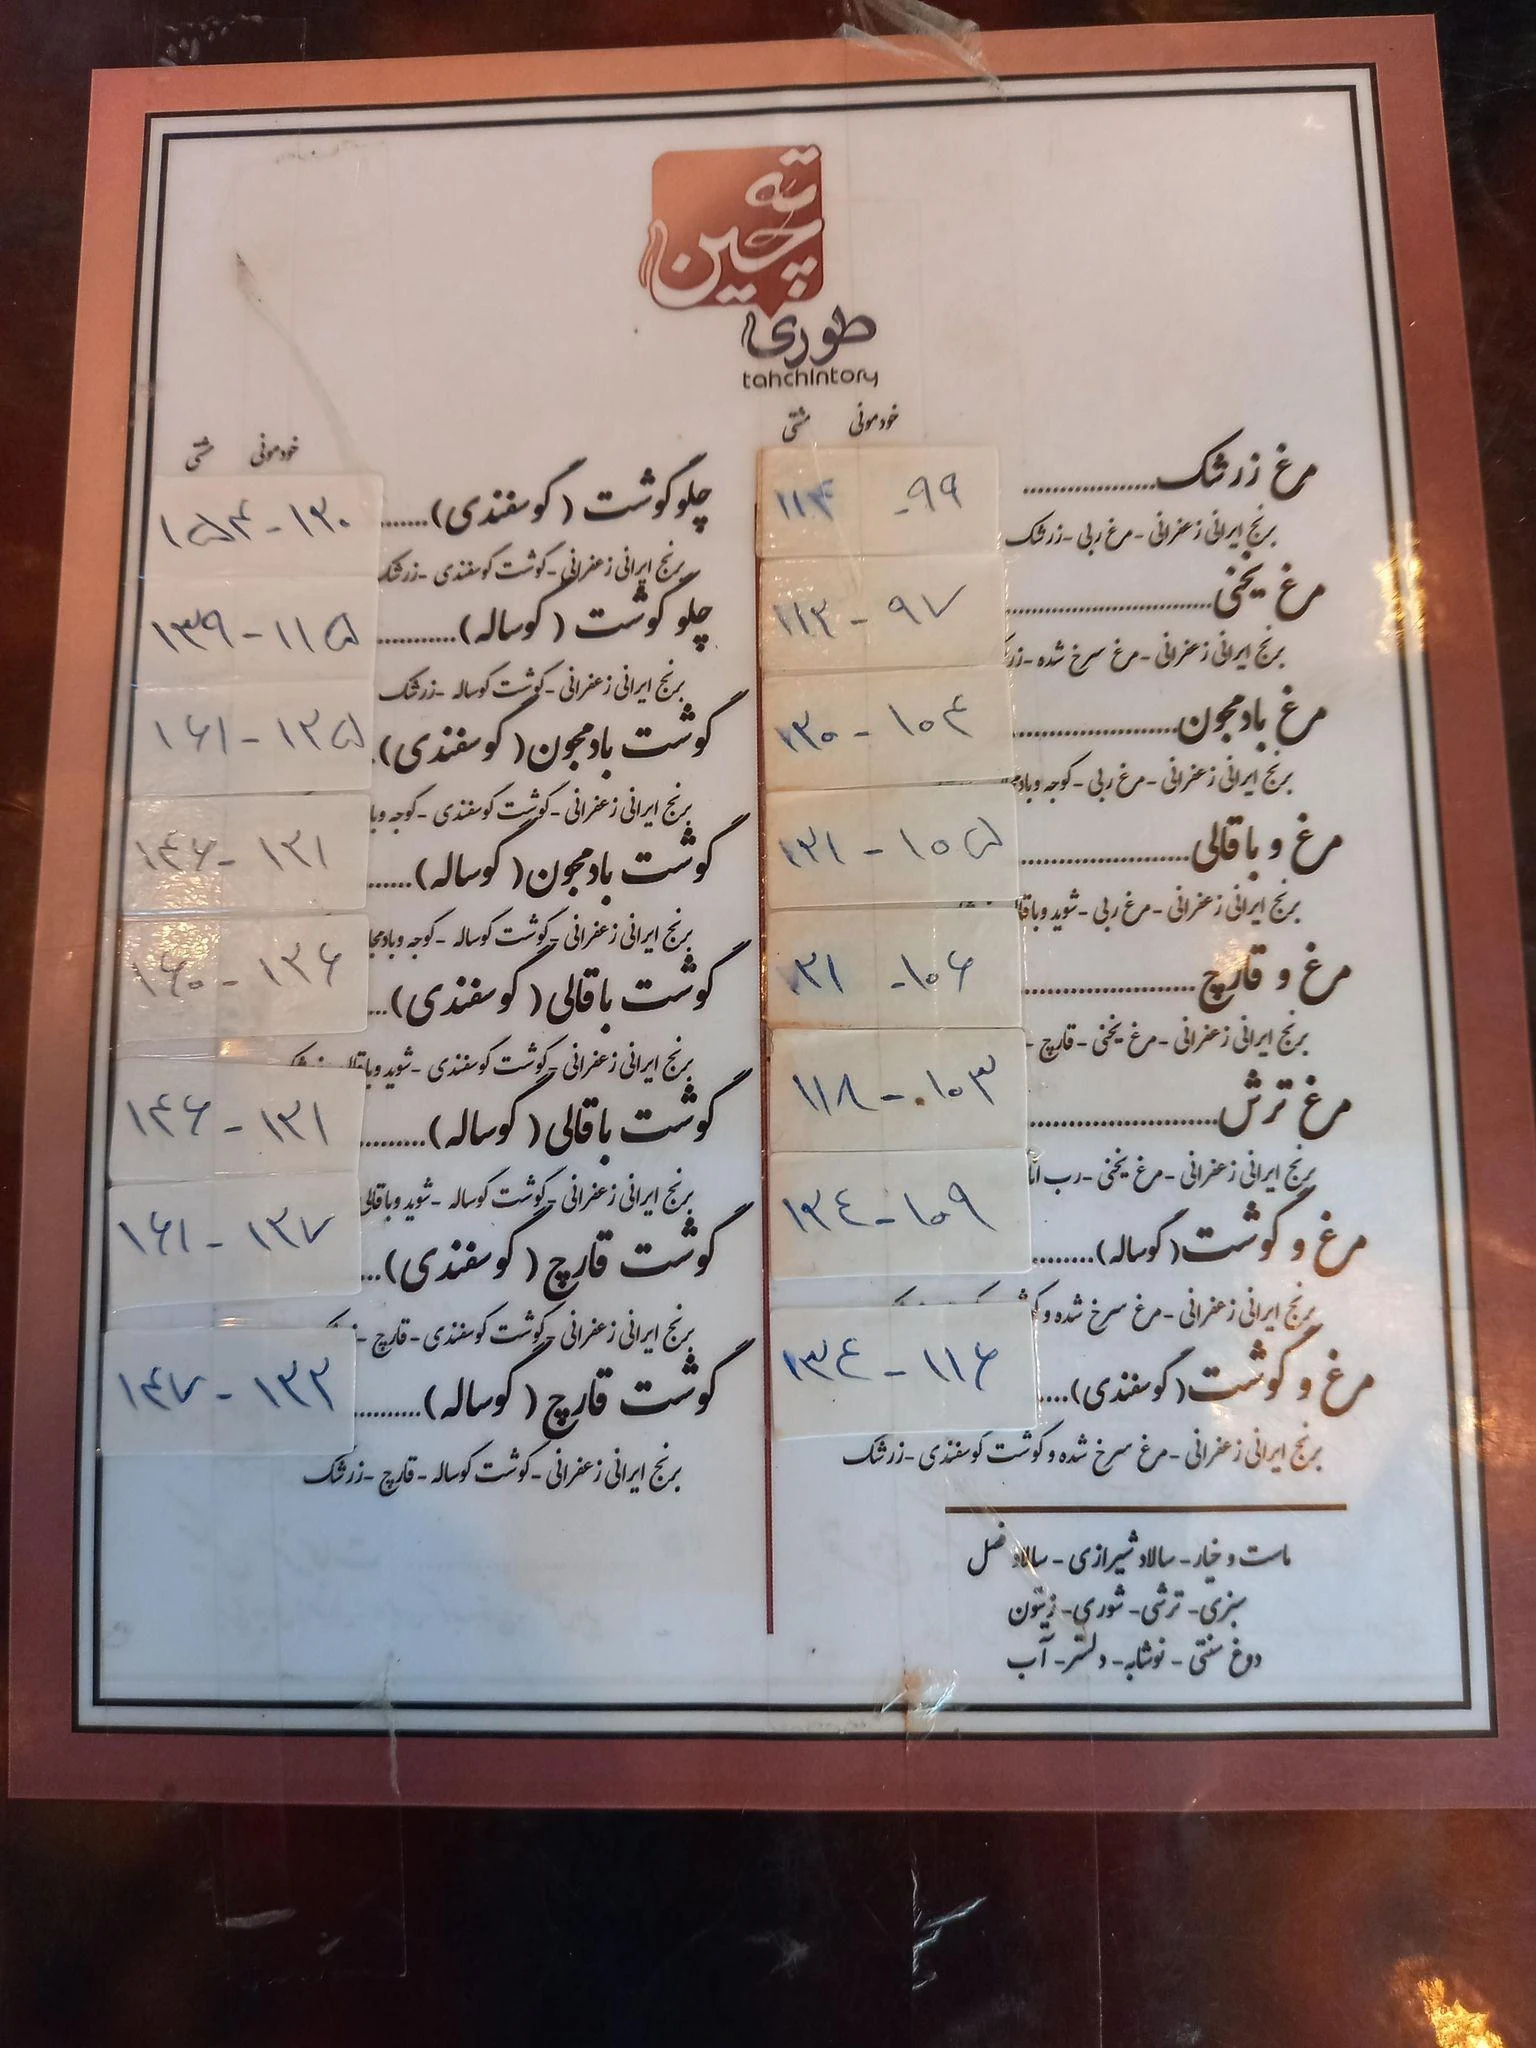 ته چین
طوری
tahchintory
خودمونی مشتی
مرغ زرشک.................. ۹۹- ۱۱۴
برنج ایرانی زعفرانی - مرغ ربی - زرشک
مرغ یخنی............................ ۹۷ - ۱۱۲
برنج ایرانی زعفرانی - مرغ سرخ شده -
مرغ بادمجون....................... ۱۰۴ -
برنج ایرانی زعفرانی - مرغ ربی - گوجه
مرغ و باقالی....................... ۱۰۵ - ۱۲۱
برنج ایرانی زعفرانی - مرغ ربی - شوید
مرغ و قارچ....................... ۱۰۶-
برنج ایرانی زعفرانی - مرغ یخنی - قارچ -
مرغ ترش......................... ۱۰۳ - ۱۱۸
برنج ایرانی زعفرانی - مرغ یخنی - رب
مرغ و گوشت (گوساله)......... ۱۰۹ - ۱۲۴
برنج ایرانی زعفرانی - مرغ سرخ شده و
مرغ و گوشت (گوسفندی).... ۱۱۶ - ۱۳۴
برنج ایرانی زعفرانی - مرغ سرخ شده و گوشت گوسفندی - زرشک
ماست و خیار - سالاد شیرازی - سالاد فصل
سبزی - ترشی - شوری - زیتون
دوغ سنتی - نوشابه - دلستر - آب
خودمونی مشتی
چلو گوشت (گوسفندی)....... ۱۳۰ - ۱۵۴
برنج ایرانی زعفرانی - گوشت گوسفندی - زرشک
چلو گوشت (گوساله)........... ۱۱۵ - ۱۳۹
برنج ایرانی زعفرانی - گوشت گوساله - زرشک
گوشت بادمجون (گوسفندی). ۱۳۵ - ۱۶۱
برنج ایرانی زعفرانی - گوشت گوسفندی - گوجه
گوشت بادمجون (گوساله)...... ۱۲۱ - ۱۴۶
برنج ایرانی زعفرانی - گوشت گوساله - گوجه
گوشت باقالی (گوسفندی)... ۱۳۶ - ۱۶۰
برنج ایرانی زعفرانی - گوشت گوسفندی - شوید
گوشت باقالی (گوساله).......... ۱۲۱ - ۱۴۶
برنج ایرانی زعفرانی - گوشت گوساله - شوید و باقالی
گوشت قارچ (گوسفندی)... ۱۳۷ - ۱۶۱
برنج ایرانی زعفرانی - گوشت گوسفندی - قارچ -
گوشت قارچ (گوساله).......... ۱۲۲ - ۱۴۷
برنج ایرانی زعفرانی - گوشت گوساله - قارچ - زرشک